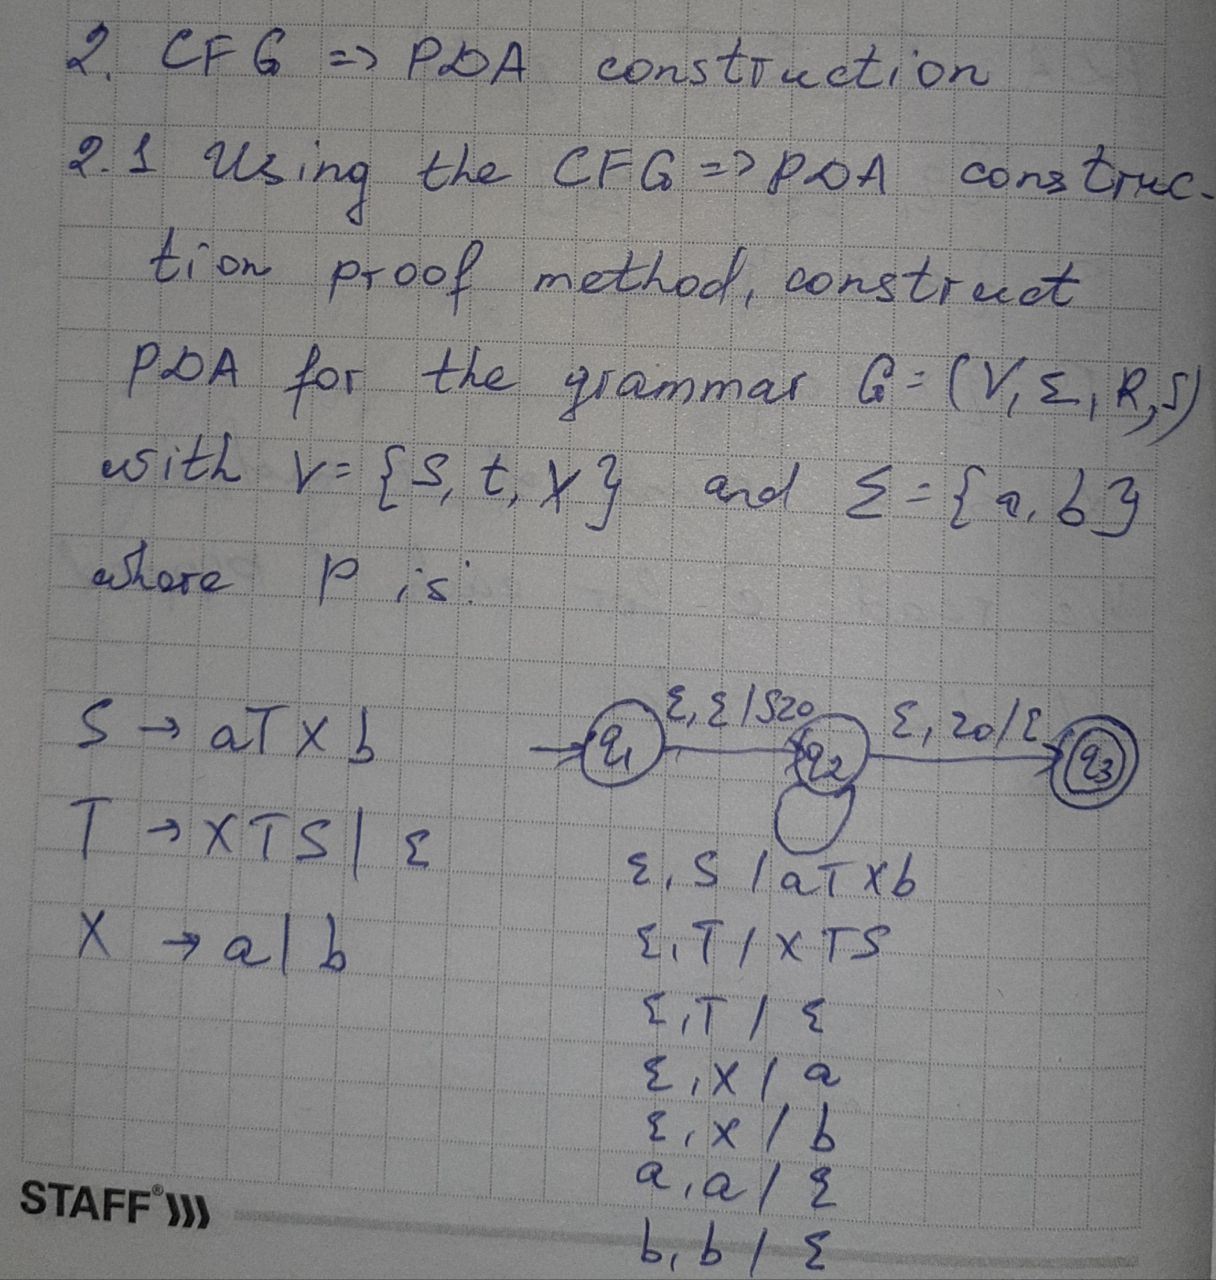 2. CFG => PDA construction
2.1 Using the CFG => PDA construc-
tion proof method, construct
PDA for the grammar G = (V, Σ, R, S)
with V = {S, t, X} and Σ = {a, b}
where P is:
S → aTXb
T → XTS | ε
X → a | b
q1 ε, ε / Sz0 q2 ε, z0 / ε q3
ε, S / aTXb
ε, T / XTS
ε, T / ε
ε, X / a
ε, X / b
a, a / ε
b, b / ε
STAFF®